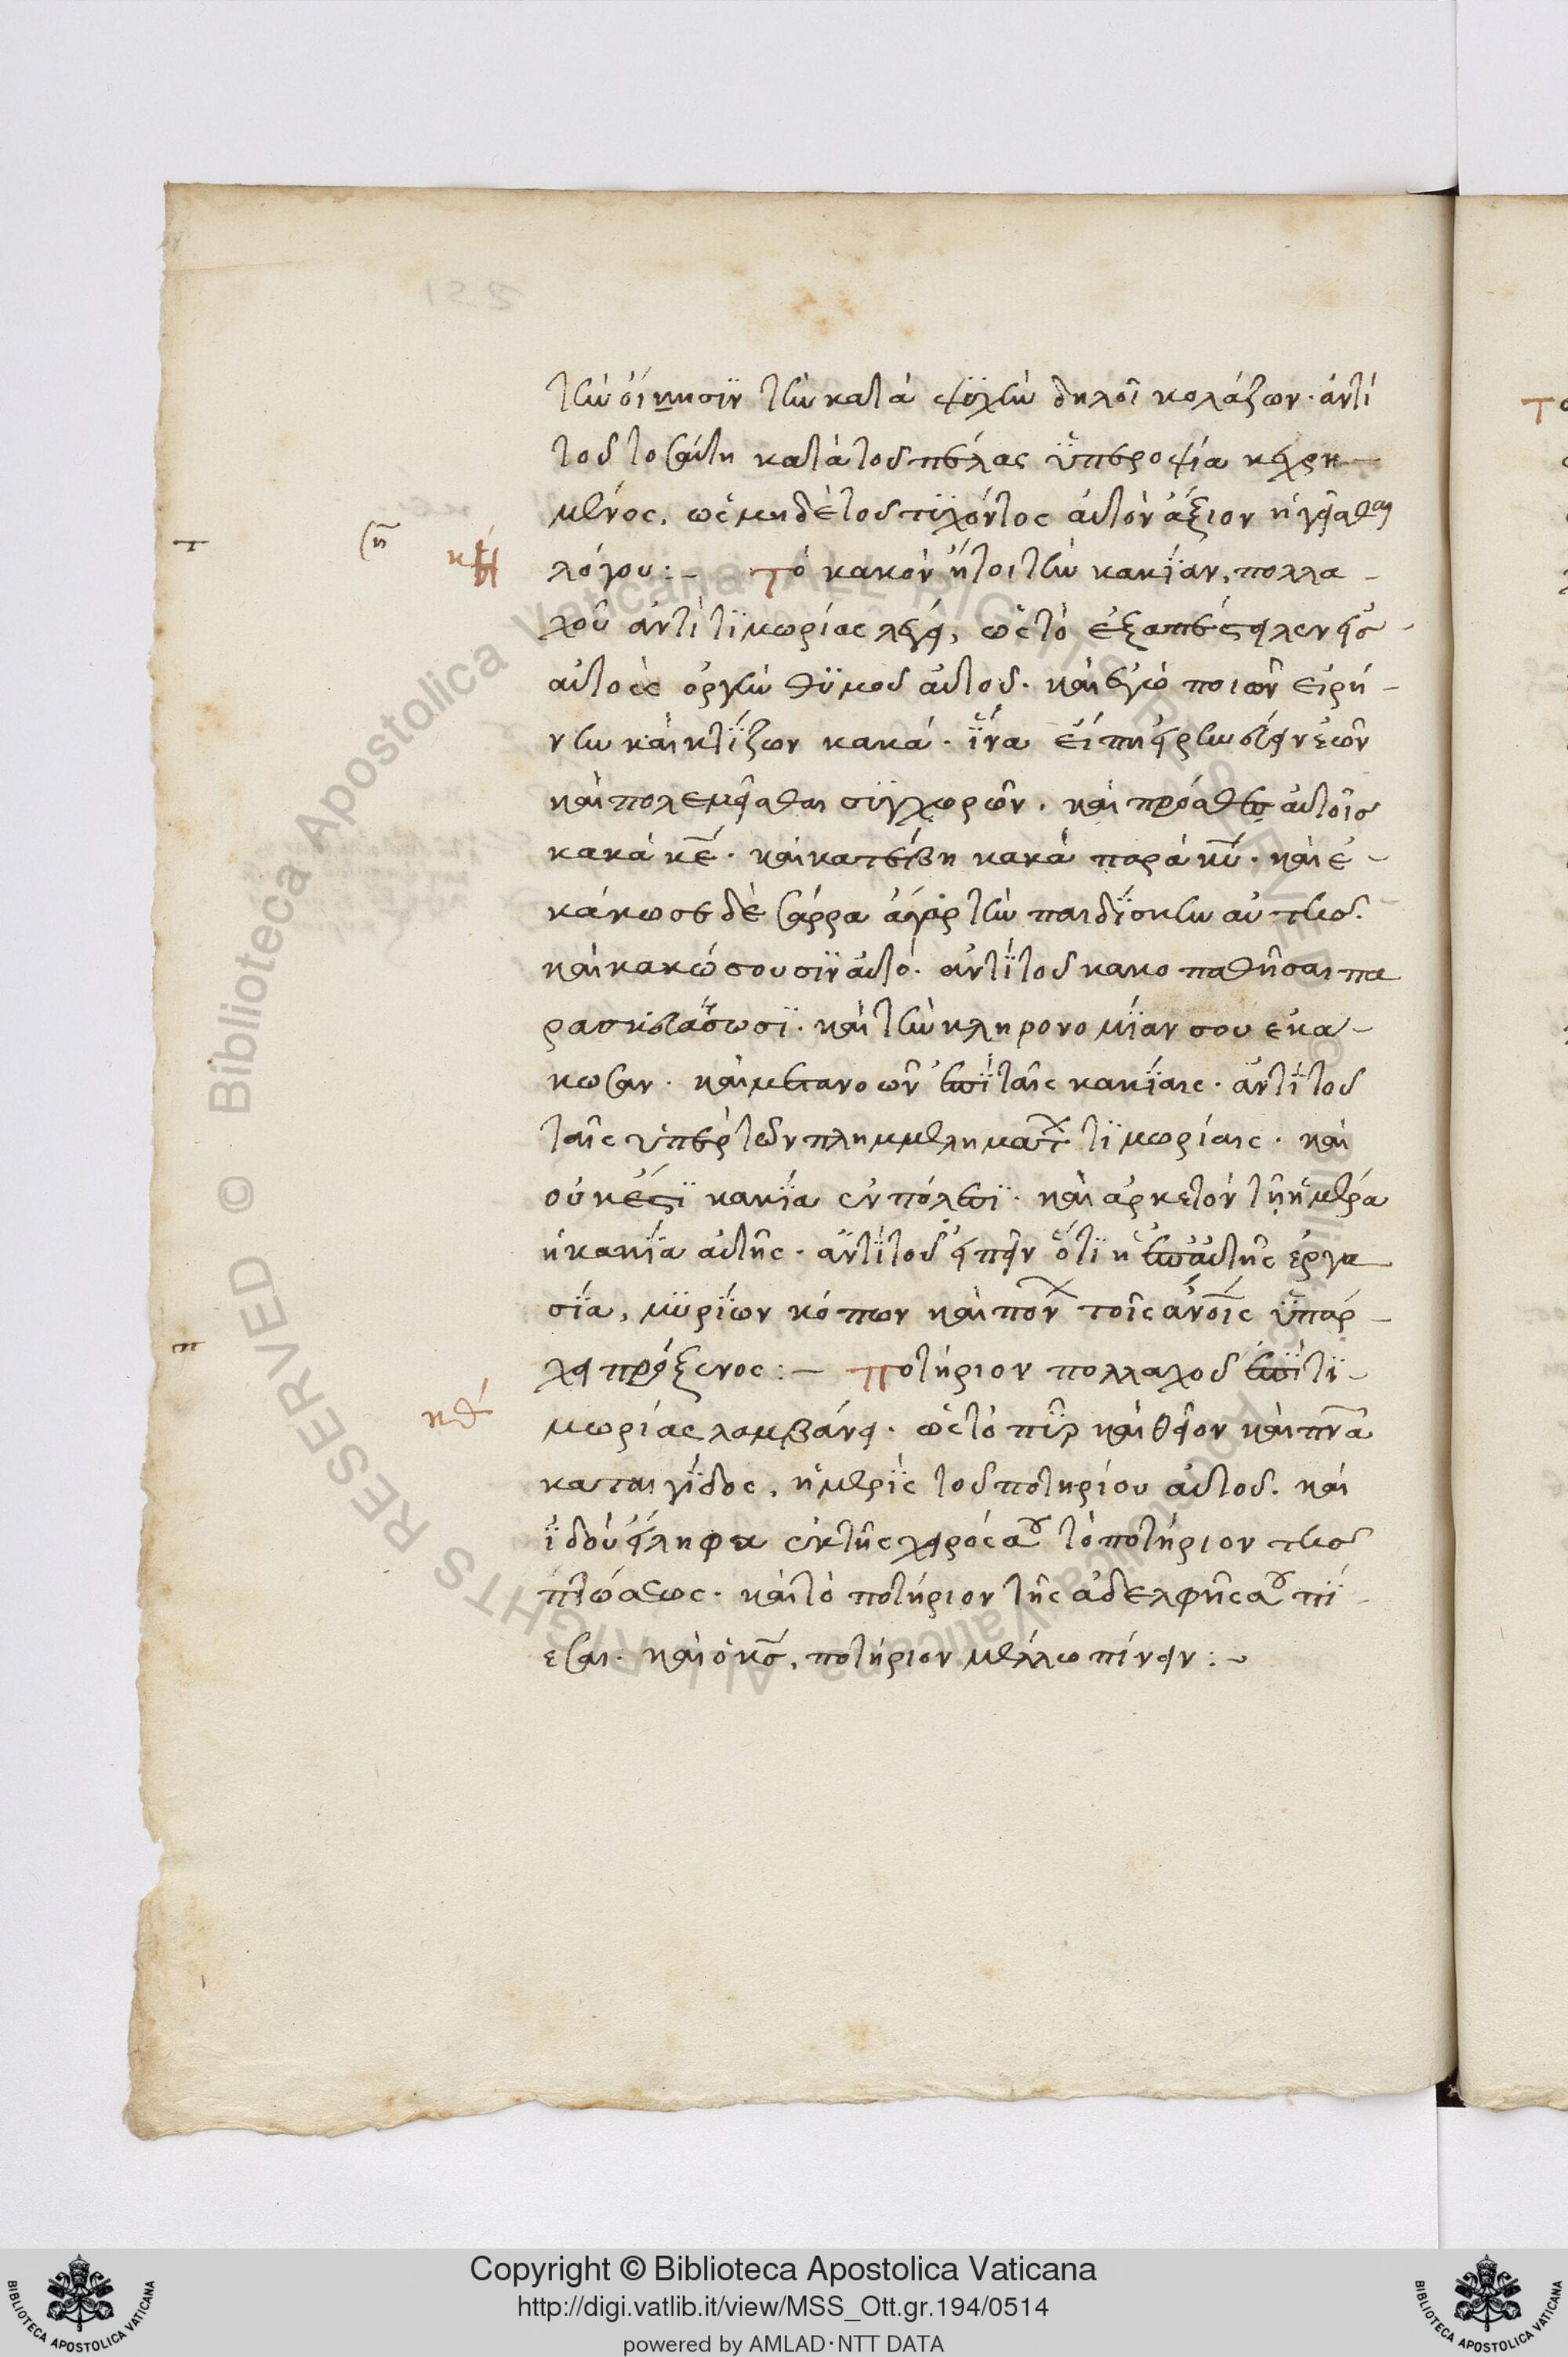 τὴν οἴκησϊν τὴν κατὰ ψϋχὴν δηλοῖ κολάζων· ἀντὶ
τοῦ τοσαύτη κατὰ τοῦ πέλας ϋπεροψία κέχρη
μένος, ὡς μηδὲ τοῦ τϋχόντος αὐτὸν ἄξιον ἡγεῖσθαι
ση
κη
λόγου:– Τὸ κακὸν ἤτοι τὴν κακΐαν, πολλα
χοῦ ἀντὶ τϊμωρίας λέγει, ὡς τὸ ἐξαπέστειλεν εἰς
αὐτοὺς ὀργὴν θϋμοῦ αὐτοῦ· καὶ ἐγὼ ποιῶν εἰρή
νην καὶ κτΐζων κακά· ἵνα εἴπη εἰρήνην
καὶ πολεμεῖσθαι σϋγχωρῶν· καὶ πρόσθες αὐτοῖς
κακὰ κε· καὶ κατέβη κακὰ παρὰ κυ· καὶ ἐ
κάκωσε δὲ σάρρα ἄγαρ τὴν παιδΐσκην αὐτῆς·
καὶ κακώσουσϊν αὐτό· ἀντΐ τοῦ κακοπαθῆσαι πα
ρασκευάσωσϊ· καὶ τὴν κληρονομΐαν σου ἐκα
κωσαν· καὶ μετανοῶν ἐπϊ ταῖς κακΐαις· ἀντΐ τοῦ
ταῖς ὑπὲρ τῶν πλημμελημάτ τϊμωρίαις· καὶ
οὐκ ἔστϊ κακΐα ἐν πόλει· καὶ ἀρκετὸν τῇ ἡμέρα
ἡ κακΐα αὐτῆς· ἀντΐ τοῦ εἰπεῖν ὅτϊ ἡ ἐπ' αὐτῆς ἐργα
σΐα, μϋρΐων κόπων καὶ πόν τοῖς ἀνοις ϋπάρ
χει πρόξενος:– Ποτήριον πολλαχοῦ ἐπὶ τϊ
κθ
μωρίας λαμβάνει· ὡς τὸ πῦρ καὶ θεῖον καὶ πνα
καταιγΐδος, ἡ μερὶς τοῦ ποτηρίου αὐτοῦ· καὶ
ϊδοὺ εἴληφα ἐκ τῆς χειρός σου τὸ ποτήριον τῆς
πτώσεως· καὶ τὸ ποτήριον τῆς ἀδελφῆς σου πΐ
εσαι· καὶ ὁ κς, ποτήριον μέλλω πίνειν:~
Copyright © Biblioteca Apostolica Vaticana
http://digi.vatlib.it/view/MSS_Ott.gr.194/0514
powered by AMLAD·NTT DATA